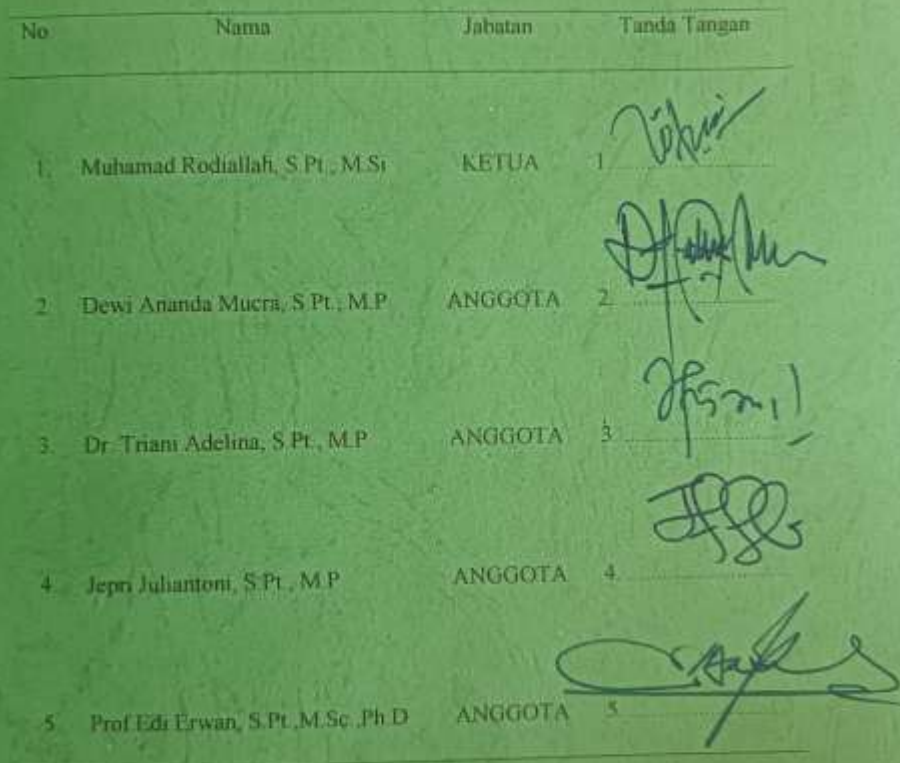 No Nama Jabatan Tanda Tangan
1. Muhamad Rodiallah, S.Pt., M.Si KETUA 1
2. Dewi Ananda Mucra, S.Pt., M.P ANGGOTA 2.
3. Dr. Triani Adelina, S.Pt., M.P ANGGOTA 3
4. Jepri Juliantoni, S.Pt., M.P ANGGOTA 4.
5. Prof Edi Erwan, S.Pt.,M.Sc.,Ph.D ANGGOTA 5.